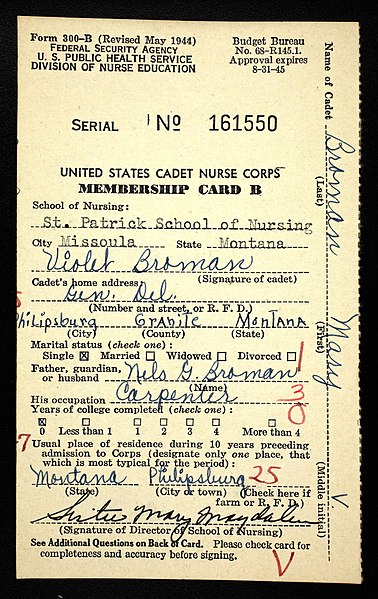 Form 300-B (Revised May 1944)
FEDERAL SECURITY AGENCY
U. S. PUBLIC HEALTH SERVICE
DIVISION OF NURSE EDUCATION
Budget Bureau
No. 68-R145.1.
Approval expires
8-31-45
SERIAL Nº 161550
UNITED STATES CADET NURSE CORPS
MEMBERSHIP CARD B
School of Nursing:
St. Patrick School of Nursing
City Missoula State Montana
Violet Broman
Cadet's home address (Signature of cadet)
Gen. Del.
(Number and street, or R. F. D.)
Philipsburg Granite Montana
(City) (County) (State)
Marital status (check one):
Single ☒ Married ☐ Widowed ☐ Divorced ☐ 1
Father, guardian, or husband Nels G. Broman
(Name)
His occupation Carpenter 3
Years of college completed (check one): 0
☒ ☐ ☐ ☐ ☐ ☐ ☐
0 Less than 1 1 2 3 4 More than 4
7 Usual place of residence during 10 years preceding
admission to Corps (designate only one place, that
which is most typical for the period):
Montana Philipsburg 25
(State) (City or town) (Check here if
farm or R. F. D.)
Sister Mary Magdalen
(Signature of Director of School of Nursing)
See Additional Questions on Back of Card. Please check card for
completeness and accuracy before signing.
V
Name of Cadet Broman Mary V.
(Last) (First) (Middle initial)